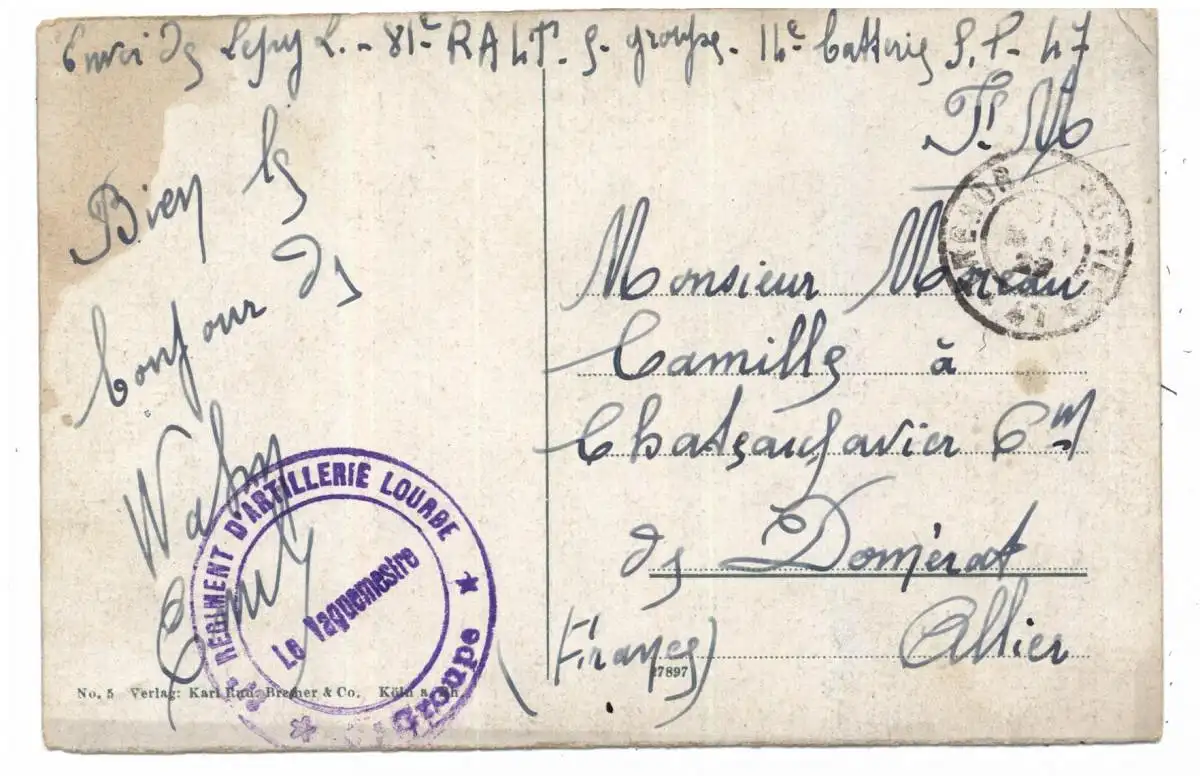 Envoi de Lepuy L. - 81e RALT. 5e groupe - 11e batterie S. P - 47
F. M
Bien le
bonjour de
Monsieur Moreau
Camille à
Chateaufavier Cne
de Domérat
Allier
(France)
RÉGIMENT D'ARTILLERIE LOURDE
Le Vaguemestre
Groupe
POSTES
47
No. 5 Verlag: Karl Rud. Bremer & Co. Köln a. Rh
27897